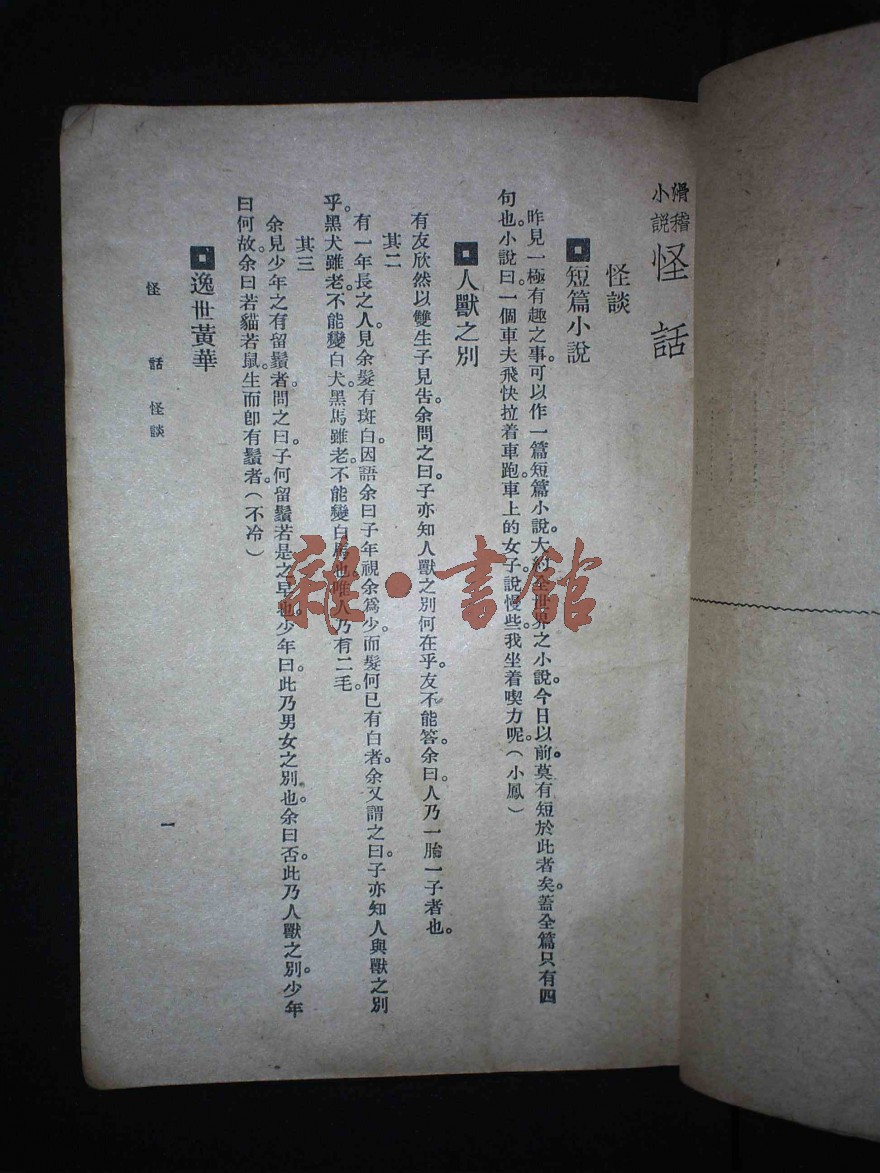 滑稽
小說
怪話
怪談
短篇小說
昨見一極有趣之事。可以作一篇短篇小說。大約全世界之小說。今日以前。莫有短於此者矣。蓋全篇只有四
句也。小說曰。一個車夫飛快拉着車跑。車上的女子。說慢些。我坐着喫力呢。(小鳳)
人獸之別
有友欣然以雙生子見告。余問之曰。子亦知人獸之別何在乎。友不能答。余曰。人乃一胎一子者也。
其二
有一年長之人。見余髮有斑白。因語余曰。子年視余爲少。而髮何已有白者。余又謂之曰。子亦知人與獸之別
乎。黑犬雖老。不能變白犬。黑馬雖老。不能變白馬也。唯人乃有二毛。
其三
余見少年之有留鬚者。問之曰。子何留鬚若是之早也。少年曰。此乃男女之別也。余曰否。此乃人獸之別。少年
曰何故。余曰若貓若鼠。生而卽有鬚者。(不冷)
逸世黃華
怪話 怪談
一
雜·書館